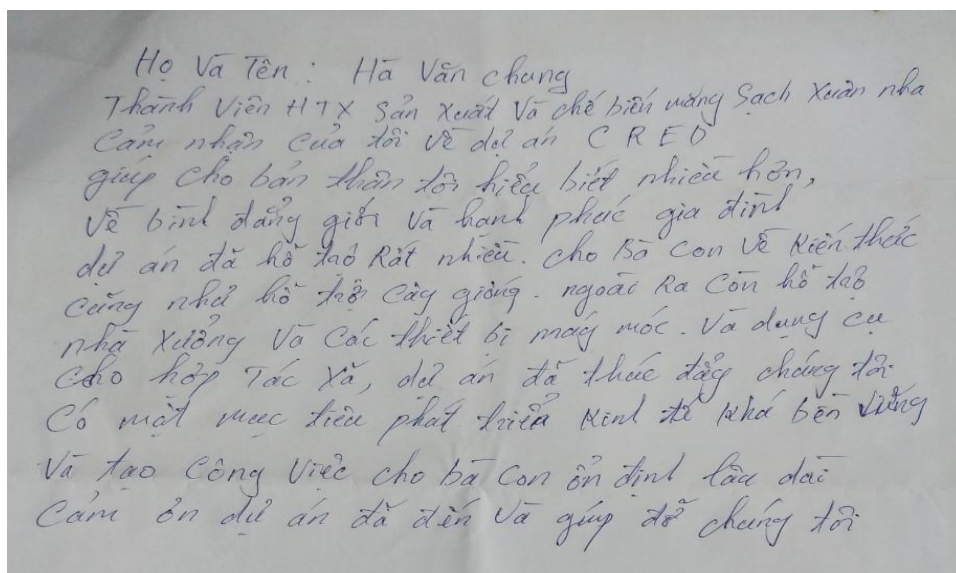 Họ Và Tên : Hà Văn chung
Thành Viên HTX Sản Xuất Và chế biến măng Sạch Xuân nha
Cảm nhận của tôi về dự án C R E D
giúp cho bản thân tôi hiểu biết nhiều hơn,
về bình đẳng giới và hạnh phúc gia đình
dự án đã hỗ trợ Rất nhiều. cho Bà con về Kiến thức
cũng như hỗ trợ cây giống. ngoài Ra Còn hỗ trợ
nhà xưởng Và Các thiết bị máy móc. Và dụng cụ
cho hợp Tác Xã, dự án đã thúc đẩy chúng tôi
Có một mục tiêu phát triển Kinh tế Khá bền vững
Và tạo Công Việc cho bà con ổn định lâu dài
Cảm ơn dự án đã đến Và giúp đỡ chúng tôi